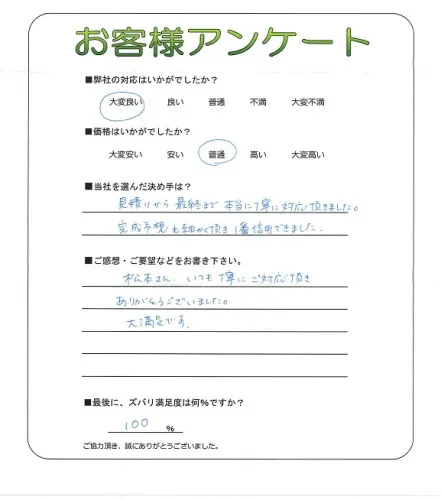 お客様アンケート
■弊社の対応はいかがでしたか?
大変良い 良い 普通 不満 大変不満
■価格はいかがでしたか?
大変安い 安い 普通 高い 大変高い
■当社を選んだ決め手は?
見積りから最終まで本当に丁寧に対応頂きました。
完成予想も細かく頂き1番信用できました.
■ご感想・ご要望などをお書き下さい。
松本さん、いつも丁寧にご対応頂き
ありがとうございました。
大満足です.
■最後に、ズバリ満足度は何%ですか?
100 %
ご協力頂き、誠にありがとうございました。